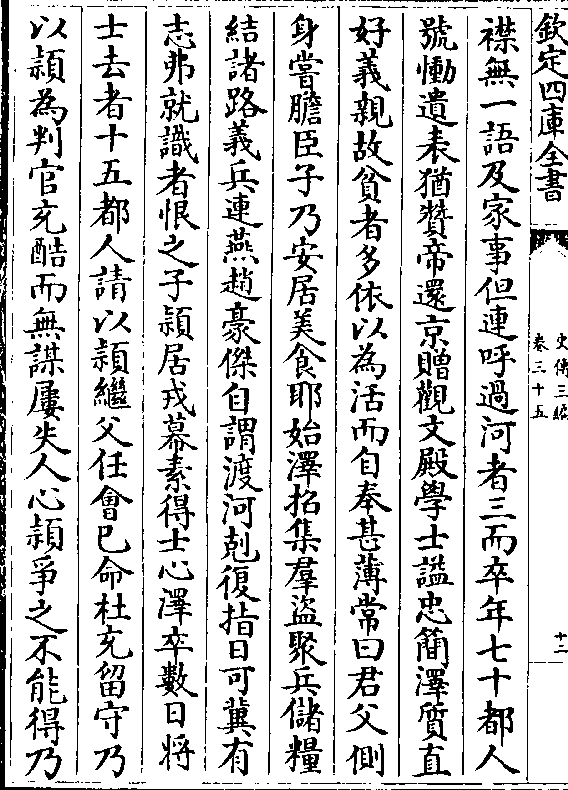 欽定四庫全書
史傳三編
卷三十五
十二
襟無一語及家事但連呼過河者三而卒年七十都人
號慟遺表猶贊帝還京贈觀文殿學士謚忠簡澤質直
好義親故貧者多依以為活而自奉甚薄常曰君父側
身嘗膽臣子乃安居美食耶始澤招集羣盜聚兵儲糧
結諸路義兵連燕趙豪傑自謂渡河剋復指日可冀有
志弗就識者恨之子頴居戎幕素得士心澤卒數日將
士去者十五都人請以頴繼父任會已命杜充留守乃
以頴為判官充酷而無謀屢失人心頴爭之不能得乃